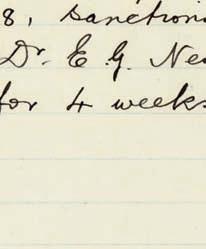 8, sanction
Dr. E. G. Ne
for 4 weeks